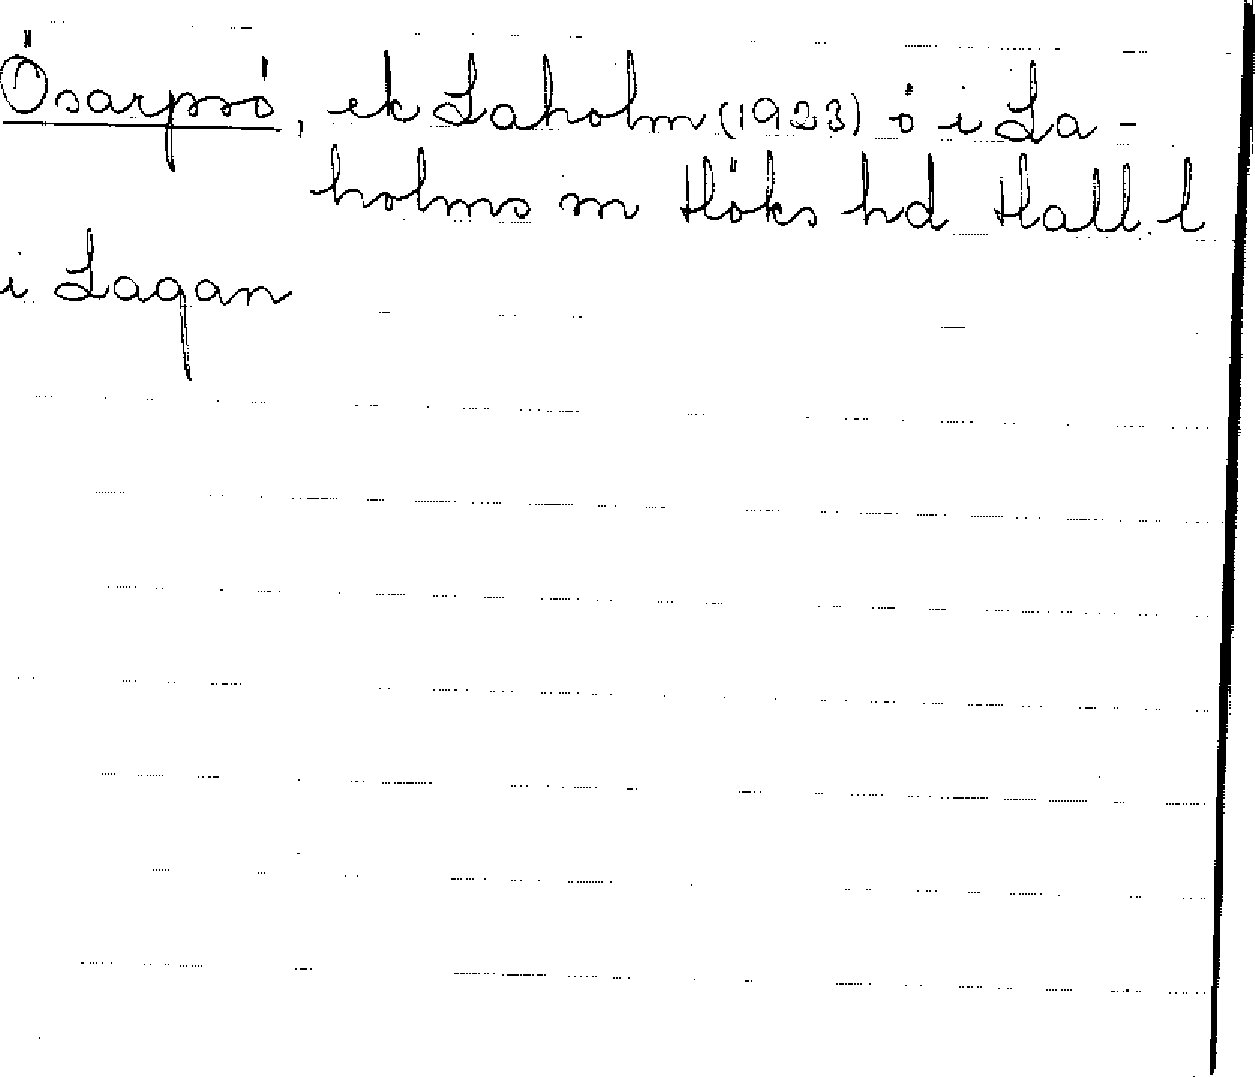 Ösarpsö, ek Laholm (1923) ö i La-
holms m Höks hd Hall. l
i Lagan